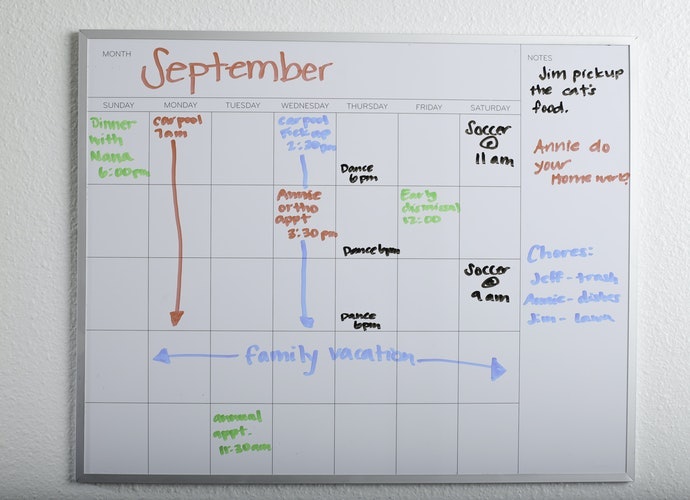 MONTH
September
SUNDAY MONDAY TUESDAY WEDNESDAY THURSDAY FRIDAY SATURDAY
Dinner
with
Nana
6:00pm
carpool
7am
carpool
pickup
2:30pm
Dance
6pm
Soccer
@
11am
Annie
ortho
appt
3:30pm
Dance 6pm
Early
dismissal
12:00
Dance
6pm
Soccer
@
9am
family vacation
annual
appt.
11:30am
NOTES
Jim pickup
the cat's
food.
Annie do
your
Homework!
Chores:
Jeff-trash
Annie-dishes
Jim-lawn